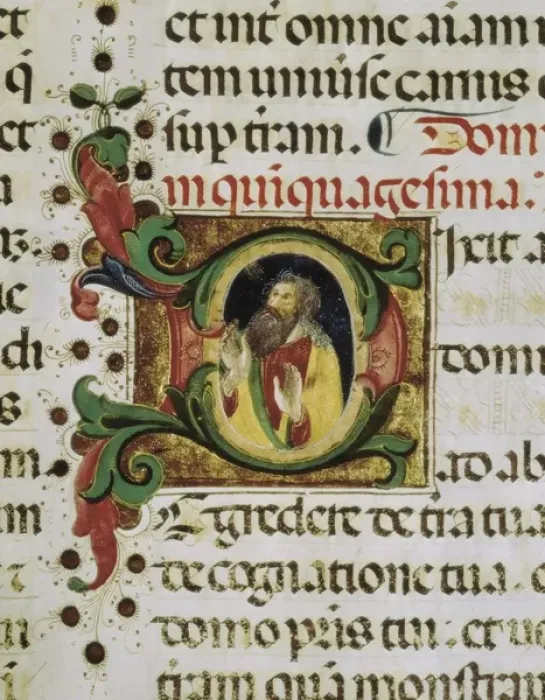 et
et int omne aiam
q̄
tem uniusc carnis
et
sup t̄ram. Dom
a
in quiquagesima.
Dixit
ac
di
dom
s
m
ad ab
m
Egredere de t̄ra tua
de cognatione tua.
m
domo pr̄is tui : et ue
t̄ram quā monstrau